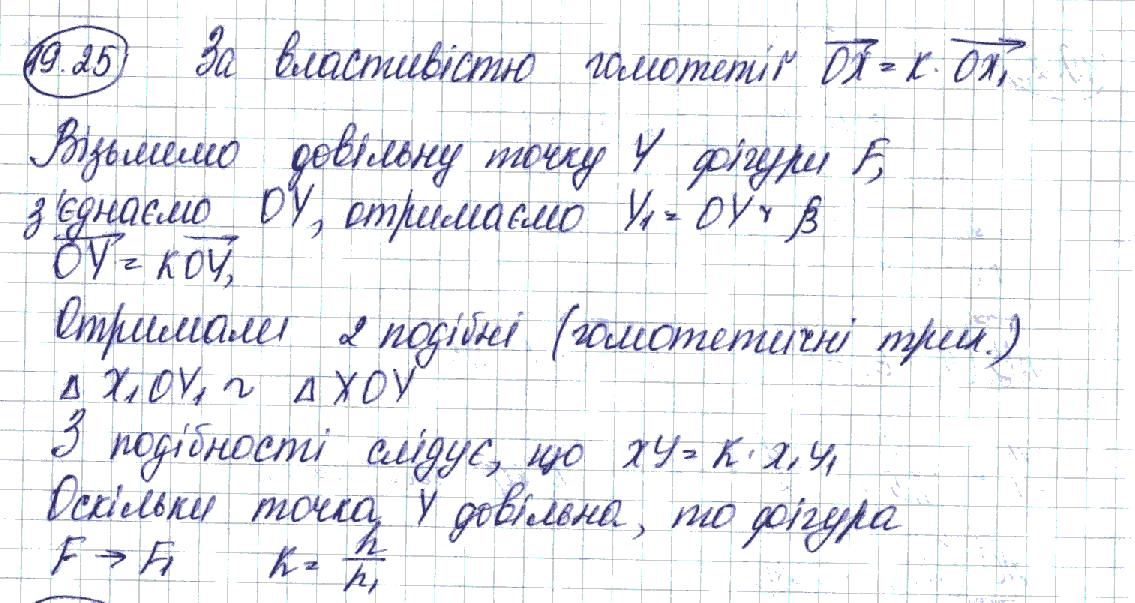 19.25 За властивістю гомотетії OX = к · OX₁
Візьмемо довільну точку Y фігури F,
з'єднаємо OY, отримаємо Y₁ = OY ∩ β
OY = к OY₁
Отримали 2 подібні (гомотетичні трик.)
Δ X₁OY₁ ~ Δ XOY
З подібності слідує, що XY = к · X₁Y₁
Оскільки точка Y довільна, то фігура
F → F₁ к = h/h₁